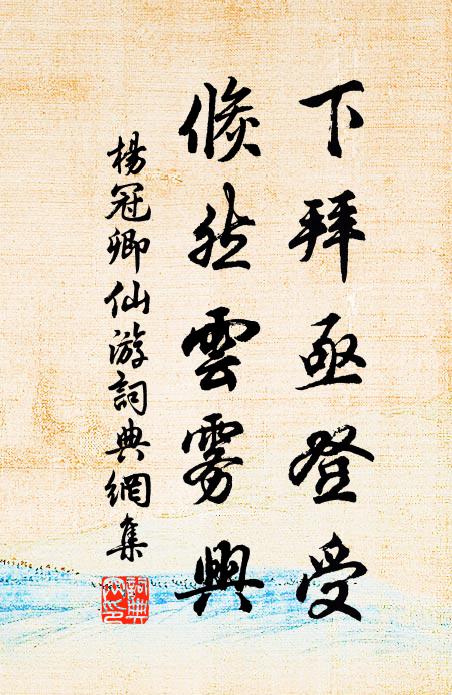 下拜亟登受
倐然雲雾興
楊冠卿仙游詞典網集